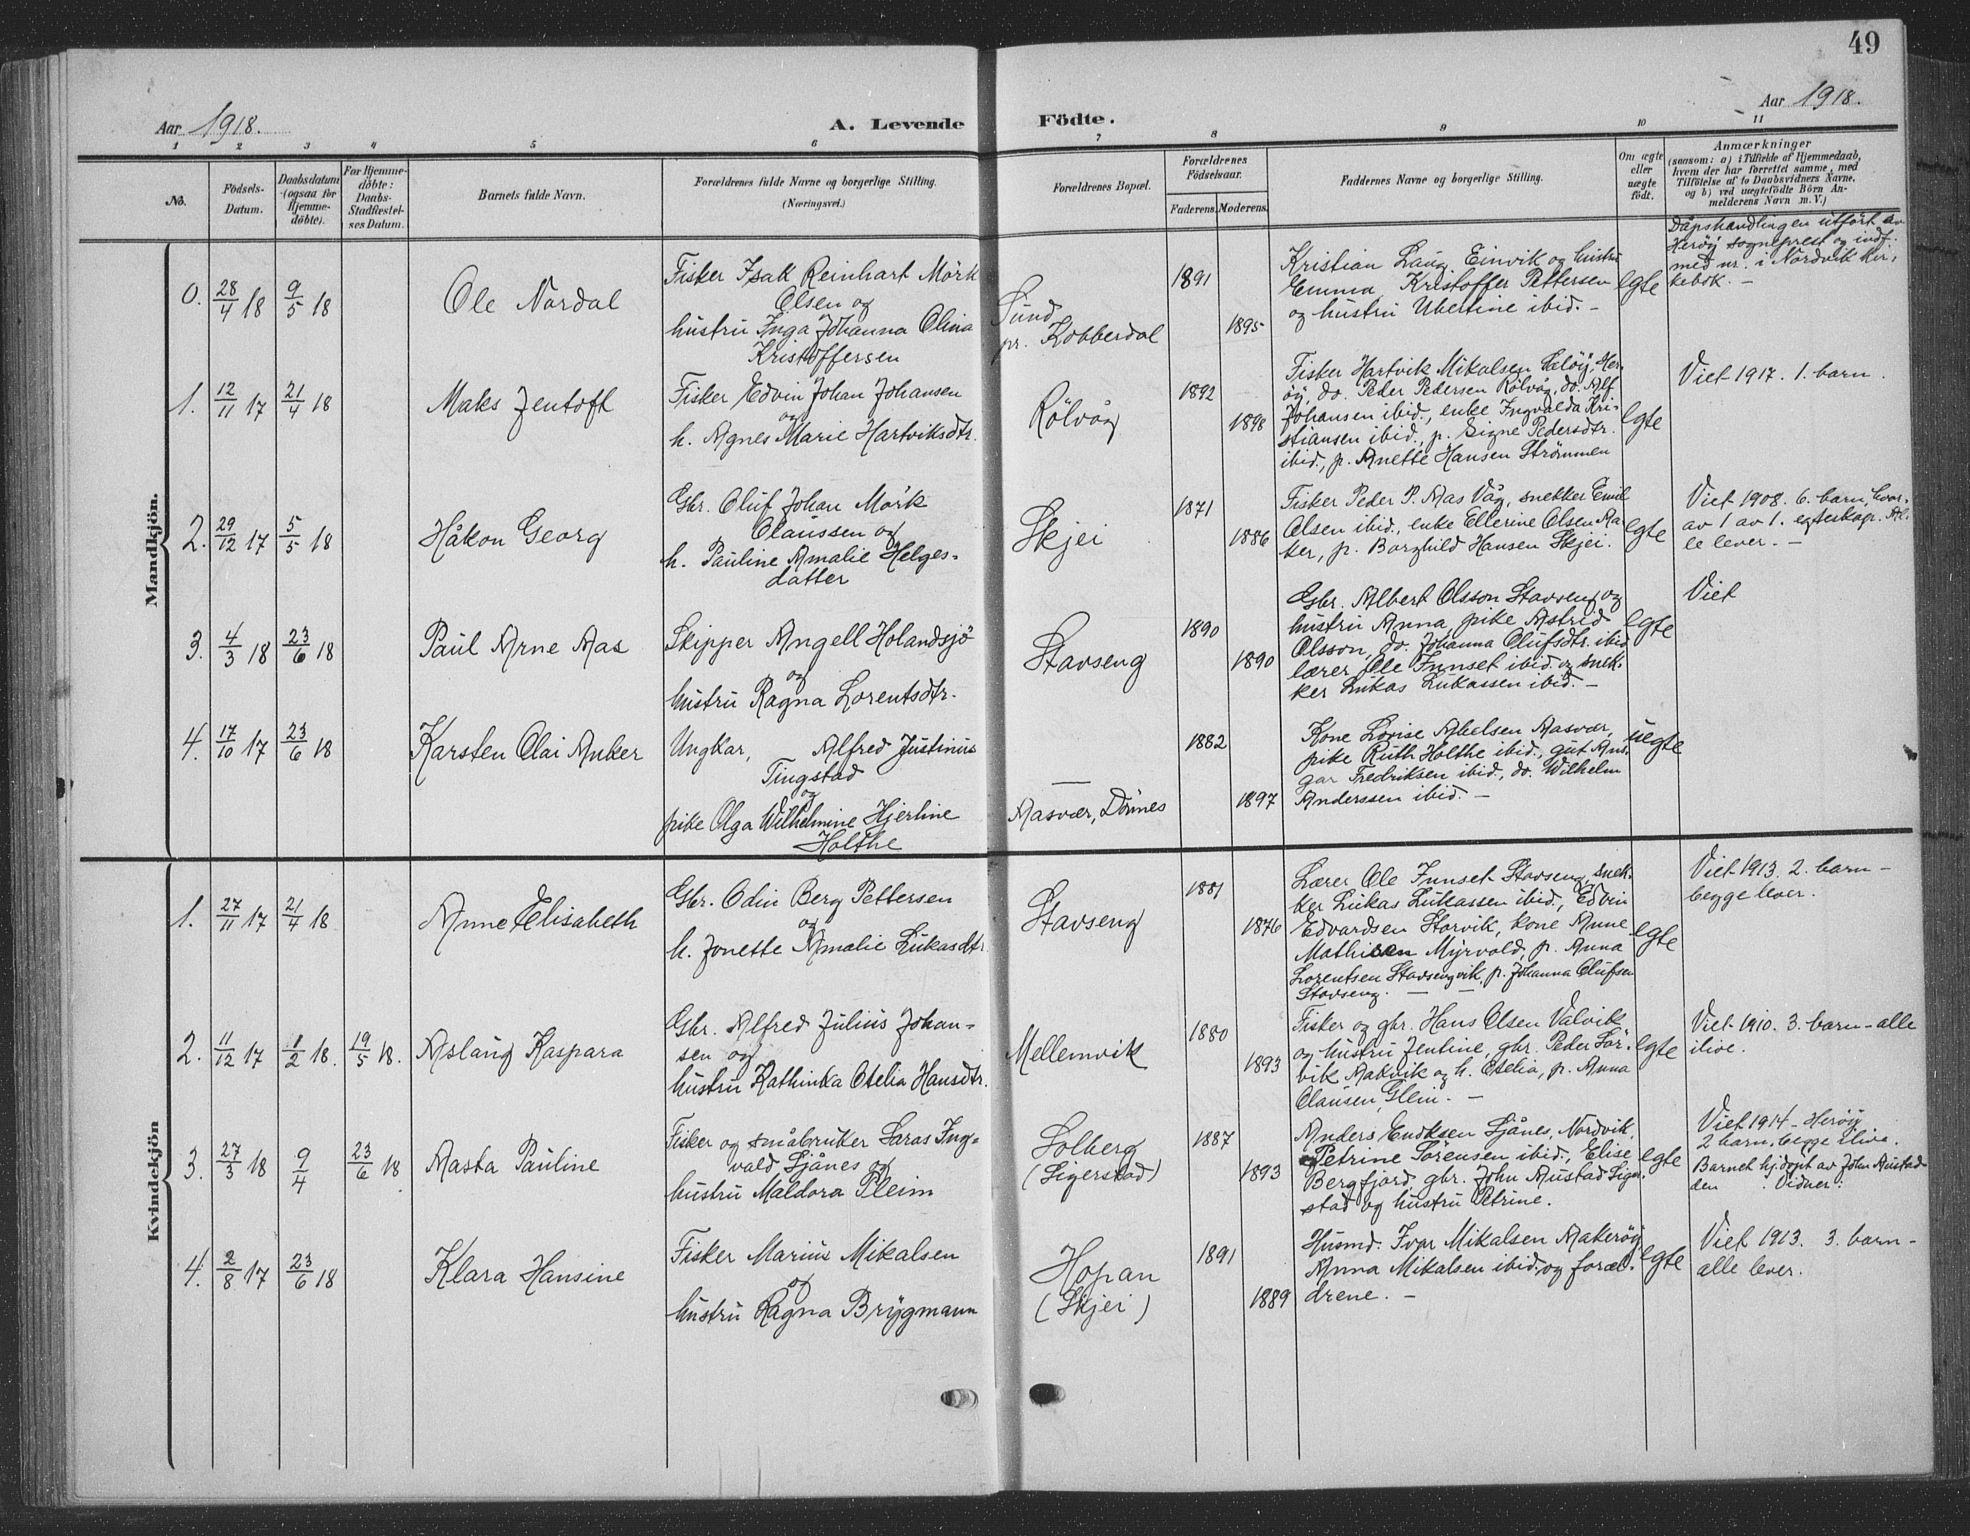 49
Aar 1918.
A. Levende Födte.
Aar 1918.
1 2 3 4 5 6 7 8 9 10 11
No.
Födsels-
Datum.
Daabsdatum
(ogsaa for
Hjemme-
döbte).
For Hjemme-
döbte:
Daabs-
Stadfæstel-
ses Datum.
Barnets fulde Navn.
Forældrenes fulde Navne og borgerlige Stilling.
(Næringsvei.)
Forældrenes Bopæl.
Forældrenes
Födselsaar.
Faderens. Moderens.
Faddernes Navne og borgerlige Stilling.
Om ægte
eller
uægte
födt.
Anmærkninger
(saasom: a) i Tilfælde af Hjemmedaab,
hvem der har forrettet samme, med
Tilföielse af to Daabsvidners Navne,
og b) ved uægtefödte Börn An-
melderens Navn m. V.)
Mandkjön.
0. 28/4 18 9/5 18
Ole Nordal
Fisker Isak Reinhart Mörk
Olsen og
hustru Inga Johanna Olina
Kristoffersen
Sund
pr. Kobberdal
1891
1895
Kristian Laug Einvik og hustru
Emma, Kristoffer Pettersen
og hustru Ubertine ibid. –
egte
Dåpshandlingen utfört av
Heröy sogneprest og indf.
med nr. i Nordvik kir-
kebok. –
1. 12/11 17 21/4 18
Maks Jentoft
Fisker Edvin Johan Johansen
og
h. Agnes Marie Hartviksdtr.
Rölvåg
1892
1898
Fisker Hartvik Mikalsen Salöy, Her-
öy, do. Peder Pedersen Rölvåg, do. Alf
Johansen ibid., enke Ingvalda Kri-
stiansen ibid., p. Signe Pedersdtr.
ibid., p. Anette Hansen Strömmen
egte
Viet 1917. 1. barn.
2. 29/12 17 5/5 18
Håkon Georg
Gbr. Oluf Johan Mörk
Claussen og
h. Pauline Amalie Helges-
datter
Skjei
1871
1886
Fisker Peder P. Aas Våg, snekker Emil
Olsen ibid., enke Ellerine Olsen Aa-
ker, p. Borghild Hansen Skjei.
egte
Viet 1908. 6. barn, hvor-
av 1 av 1. egteskap. Al-
le lever. –
3. 4/3 18 23/6 18
Paul Arne Aas
Skipper Angell Holandsjö
og
hustru Ragna Lorentsdtr.
Stavseng
1890
1890
Gbr. Albert Olsson Stavseng og
hustru Anna, pike Astrid
Olsson, do. Johanna Olufsdtr. ibid
lærer Ole Innset ibid. og snek-
ker Lukas Lukassen ibid. –
egte
Viet
4. 17/10 17 23/6 18
Karsten Olai Anker
Ungkar, Alfred Justinus
Tingstad
og
pike Olga Wilhelmine Hjerline
Holthe
—
Aasvær, Dönnes
1882
1897
Kone Lovise Abelsen Aasvær,
pike Ruth Holthe ibid., gut Ans-
gar Fredriksen ibid., do. Wilhelm
Anderssen ibid. –
uegte
Kvindekjön
1. 27/11 17 21/4 18
Anne Elisabeth
Gbr. Odin Berg Pettersen
og
h. Jonette Amalie Lukasdtr.
Stavseng
1881
1876
Lærer Ole Innset Stavseng, snek-
ker Lukas Lukassen ibid., Edvin
Edvardsen Storvik, kone Anne
Mathisen Myrvold, p. Anna
Lorentsen Stavsengvik, p. Johanna Olufsen
Stavseng. — —
egte
Viet 1913. 2. barn –
begge lever.
2. 11/12 17 1/2 18. 19/5 18.
Aslaug Kaspara
Gbr. Alfred Julius Johan-
sen og
hustru Kathinka Otelia Hansdtr.
Mellemvik
1880
1893
Fisker og gbr. Hans Olsen Valvik
og hustru Jentine, gbr. Peder Sör-
vik Aakvik og h. Otelia, p. Anna
Clausen, Glein. –
egte
Viet 1910. 3. barn – alle
ilive.
3. 27/3 18 9/4 23/6 18
Aasta Pauline
Fisker og småbruker Laras Ing-
vald Sjånes og
hustru Maldora Pleim
Solberg
(Sigerstad)
1887
1893
Anders Endresen Sjånes, Nordvik,
Petrine Sörensen ibid., Elise
Bergfjord, gbr. John Austad Siger-
stad og hustru Petrine.
egte
Viet 1914 – Heröy
2 barn, begge ilive.
Barnet hj.döpt av John Austad
den . Vidner:
4. 2/8 17 23/6 18
Klara Hansine
Fisker Marius Mikalsen
og
hustru Ragna Brygmann
Hopan
(Skjei)
1891
1889
Husmd. Ivar Mikalsen Aakeröy
Anna Mikalsen ibid. og foræl-
drene. –
egte
Viet 1913. 3. barn –
alle lever.